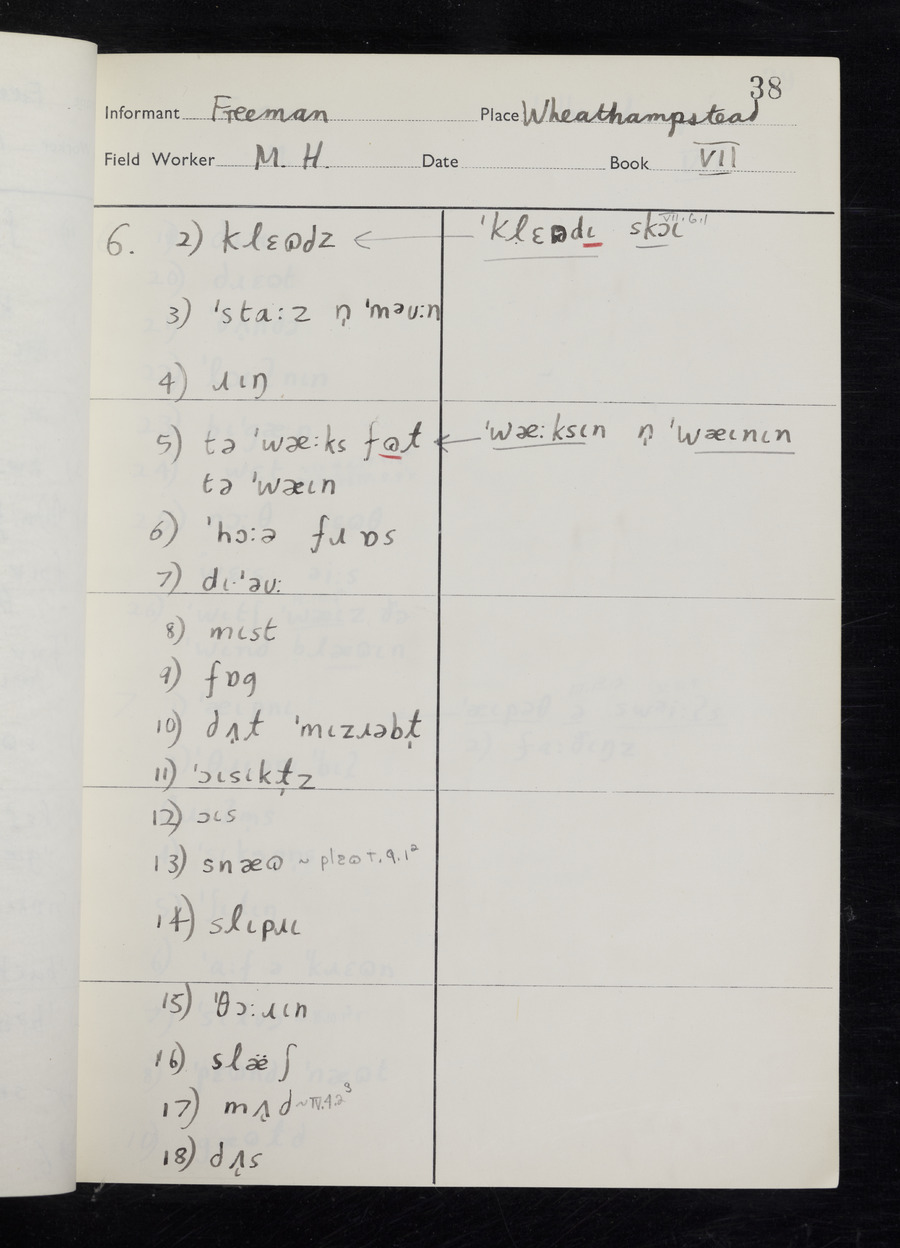 38
Informant Freeman Place Wheathampstead
Field Worker M. H. Date Book VII
6. 2) klɛɷdz ← 'klɛɷdɩ skɔɩ VII.6.1
3) 'sta:z n̩ 'məʊ:n
4) ɹɩŋ
5) tə 'wæ:ks fɷt ← 'wæ:ksɩn n̩ 'wæɩnɩn
tə 'wæɩn
6) 'hɔ:ə fɹɒs
7) dɩ·'əʊ:
8) mɩst
9) fɒg
10) dʌ̨t 'mɩzɹəbɫ̩
11) 'ɔɩsɩkɫ̩z
12) ɔɩs
13) snæɷ ~ plɛɷ I.9.1²
14) slɩpɹɩ
15) 'θɔ:ɹɩn
16) slæ̈ʃ
17) mʌ̨d ~ IV.4.2³
18) dʌ̨s